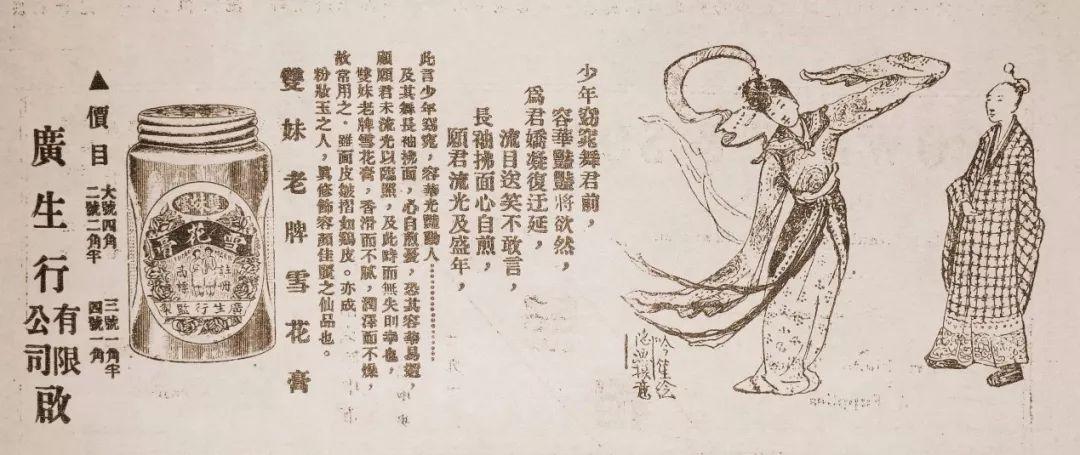 少年窈窕舞君前，
容華豔豔將欲然，
爲君嬌凝復迂延，
流目送笑不敢言，
長袖拂面心自煎，
願君流光及盛年，
此言少年窈窕，容華光豔動人…………
及其舞長袖拂面，心自煎憂，恐其容華易
顧願君未流光以臨照，及此時而無失則幸也，
雙妹老牌雪花膏，香滑而不膩，潤澤而不燥，
故常用之。雖面皮皺摺如鷄皮。亦成
粉妝玉之人，眞修飾容顏佳麗之仙品也。
雙妹老牌雪花膏
雙妹
雪花膏
註冊
商標
廣生行監製
▲價目
大號四角 三號一角半
二號二角半 四號一角
廣生行有限公司啟